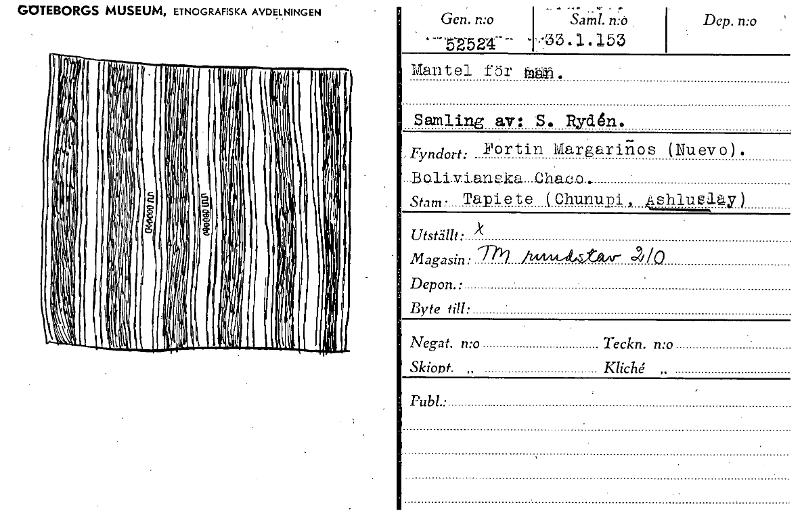 GÖTEBORGS MUSEUM, ETNOGRAFISKA AVDELNINGEN
Gen. n:o Saml. n:o Dep. n:o
52524 33.1.153
Mantel för man.
Samling av: S. Rydén.
Fyndort: Fortin Margariños (Nuevo).
Bolivianska Chaco.
Stam: Tapiete (Chunupi, Ashluslay)
Utställt: X
Magasin: TM rundstav 2/0
Depon.:
Byte till:
Negat. n:o Teckn. n:o
Skiopt. „ Kliché „
Publ.: